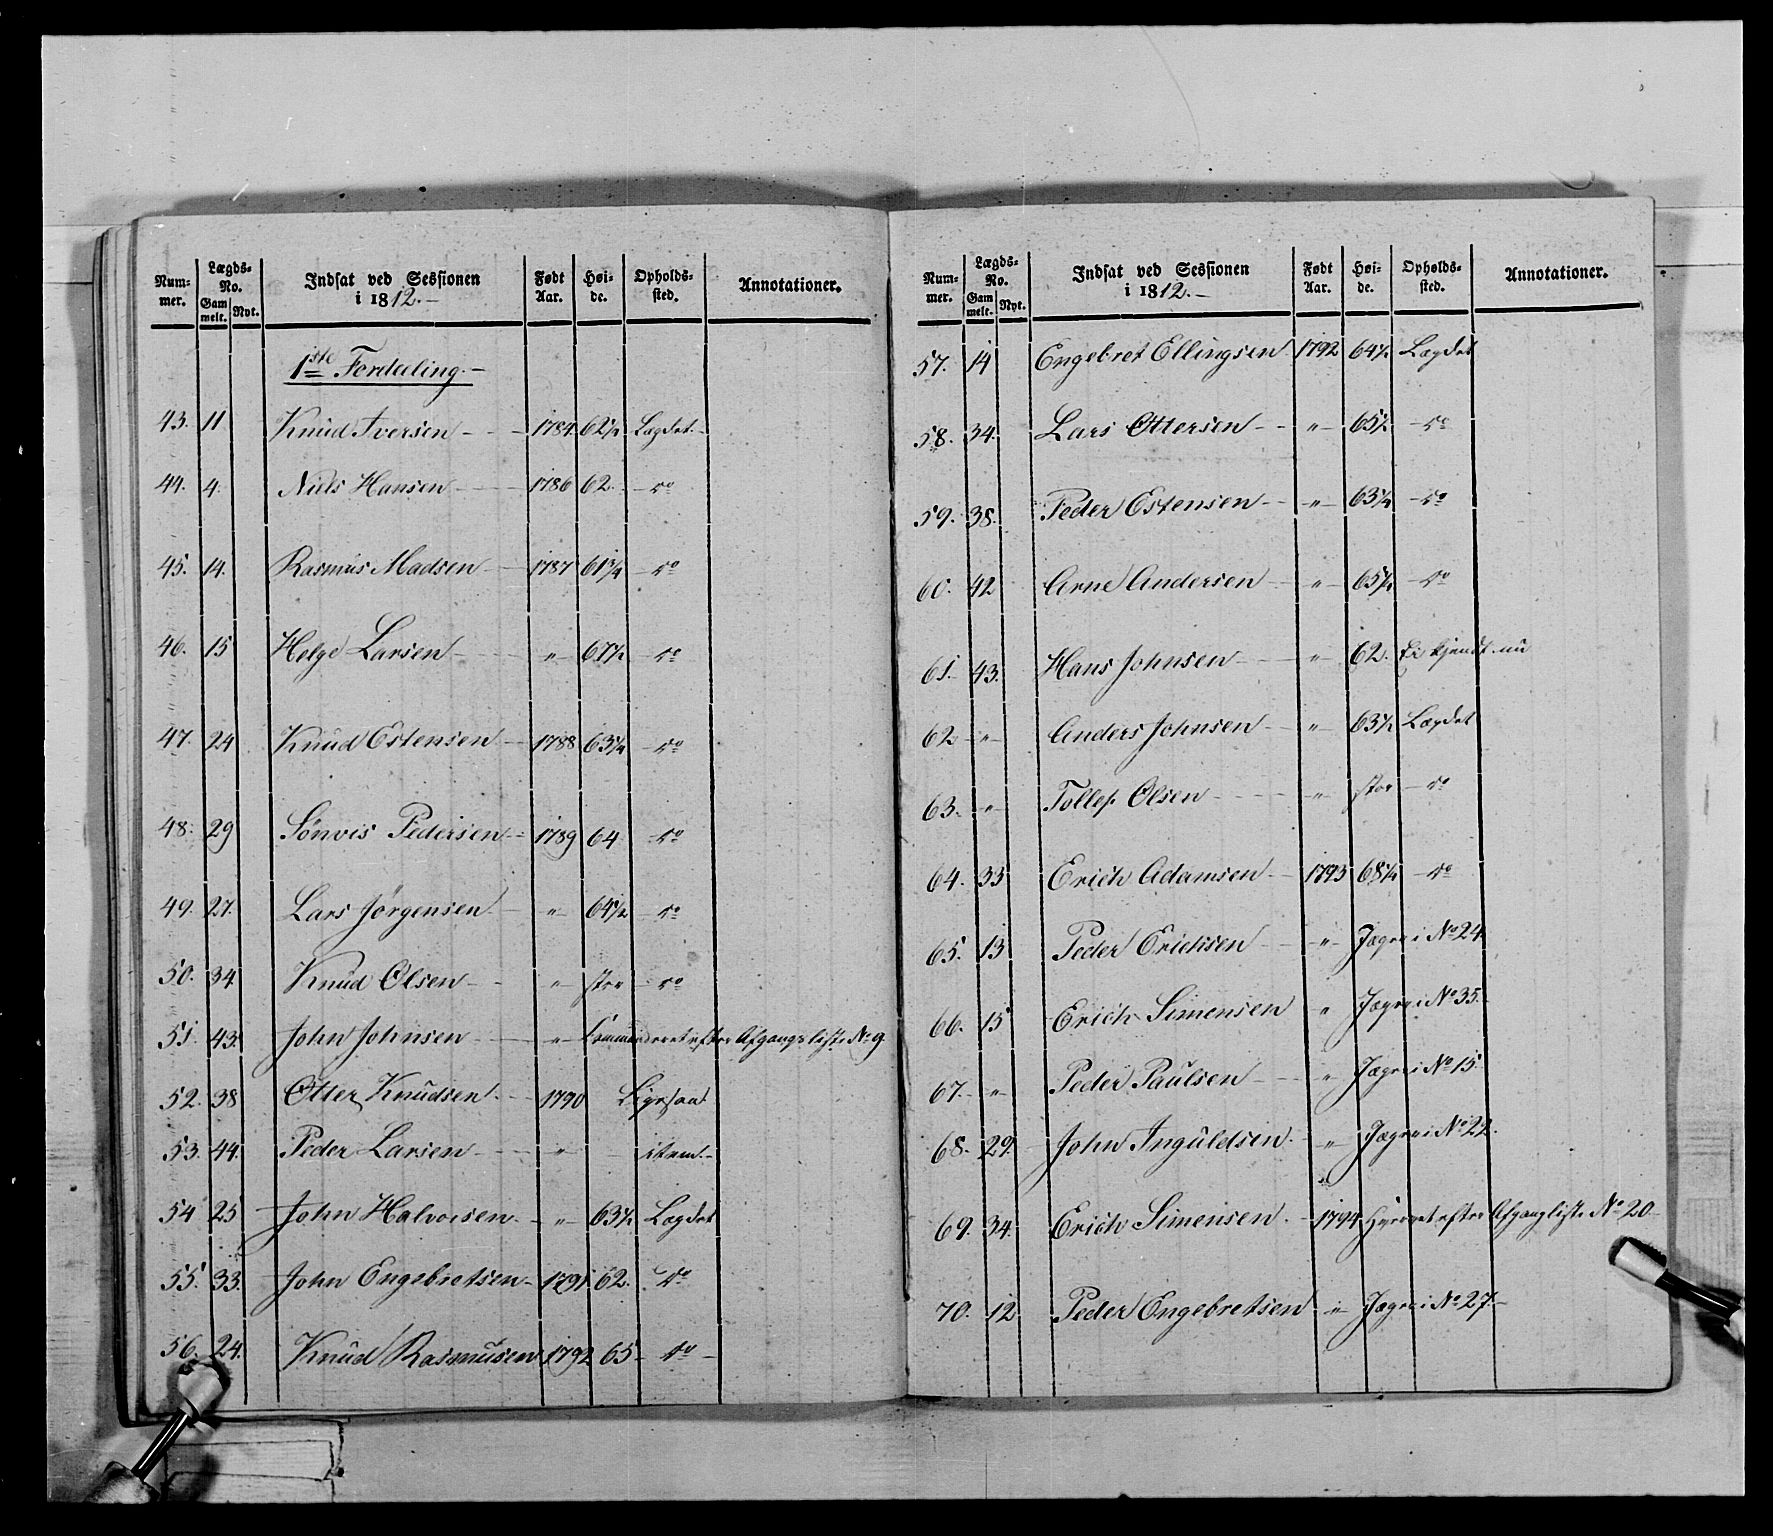 Num-mer. | Lægds-No. Gam melt. | Nyt. | Indsat ved Sessionen i 1812.- | Født Aar. | Høi-de. | Opholds-sted. | Annotationer.
1ste Fordeeling.-
43. 11 Knud Iversen - 1784 62½ Lægdet.-
44. 4. Niels Hansen - 1786 62. - do
45. 14. Rasmus Madsen - 1787 61¾ - do
46. 15 Helge Larsen - " 67½ - do
47. 24 Knud Estensen - 1788 63¼ - do
48. 29 Sönvis Pedersen - 1789 64 - do
49. 27. Lars Jörgensen - " 64½ - do
50. 34 Knud Olsen - " stor - do
51. 43. John Johnsen - " Commanderet efter Afgangsliste No 9
52. 38 Otter Knudsen - 1790
53. 44. Peder Larsen - " item.-
54 25 John Halvorsen - " 63½ Lægdet
55. 33. John Engebretsen - 1791 62. do
56. 24. Knud Rasmusen 1792 65 - do -
Num-mer. | Lægds-No. Gam melt. | Nyt. | Indsat ved Sessionen i 1812.- | Født Aar. | Høi-de. | Opholds-sted. | Annotationer.
57. 14 Engebret Ellingsen 1792 64½ Lægdet
58. 34. Lars Ottersen - " 65½ - do
59. 38. Peder Estensen - " 63¼ - do
60. 42 Arne Andersen - " 65¼ - do
61. 43. Hans Johnsen - " 62. Ei kjendt nu
62 " Anders Johnsen - " 63½ Lægdet
63. " Tollef Olsen - " stor - do
64. 33 Erich Adamsen - 1793 68½ - do
65. 13 Peder Erichsen - " Jæger i No 24
66. 15 Erich Simensen " Jæger i No 35.-
67. " Peder Paulsen - " Jæger i No 15.
68. 29. John Inguldsen. - " Jæger i No 22.
69. 34. Erich Simensen. - 1794 Hvervet efter Afgangliste No 20
70. 12 Peder Engebretsen " Jæger i No 27.-